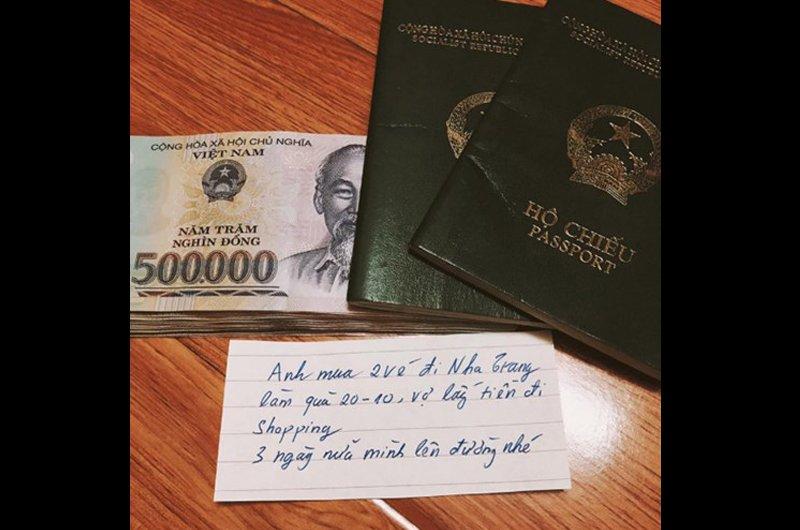 CỘNG HÒA XÃ HỘI CHỦ NGHĨA
VIỆT NAM
NĂM TRĂM
NGHÌN ĐỒNG
500.000
CỘNG HÒA XÃ HỘI CHỦ
SOCIALIST REPUBLIC
CỘNG HÒA XÃ HỘI CHỦ
SOCIALIST
HỘ CHIẾU
PASSPORT
Anh mua 2 vé đi Nha Trang
làm quà 20-10, vợ lấy tiền đi
Shopping
3 ngày nữa mình lên đường nhé